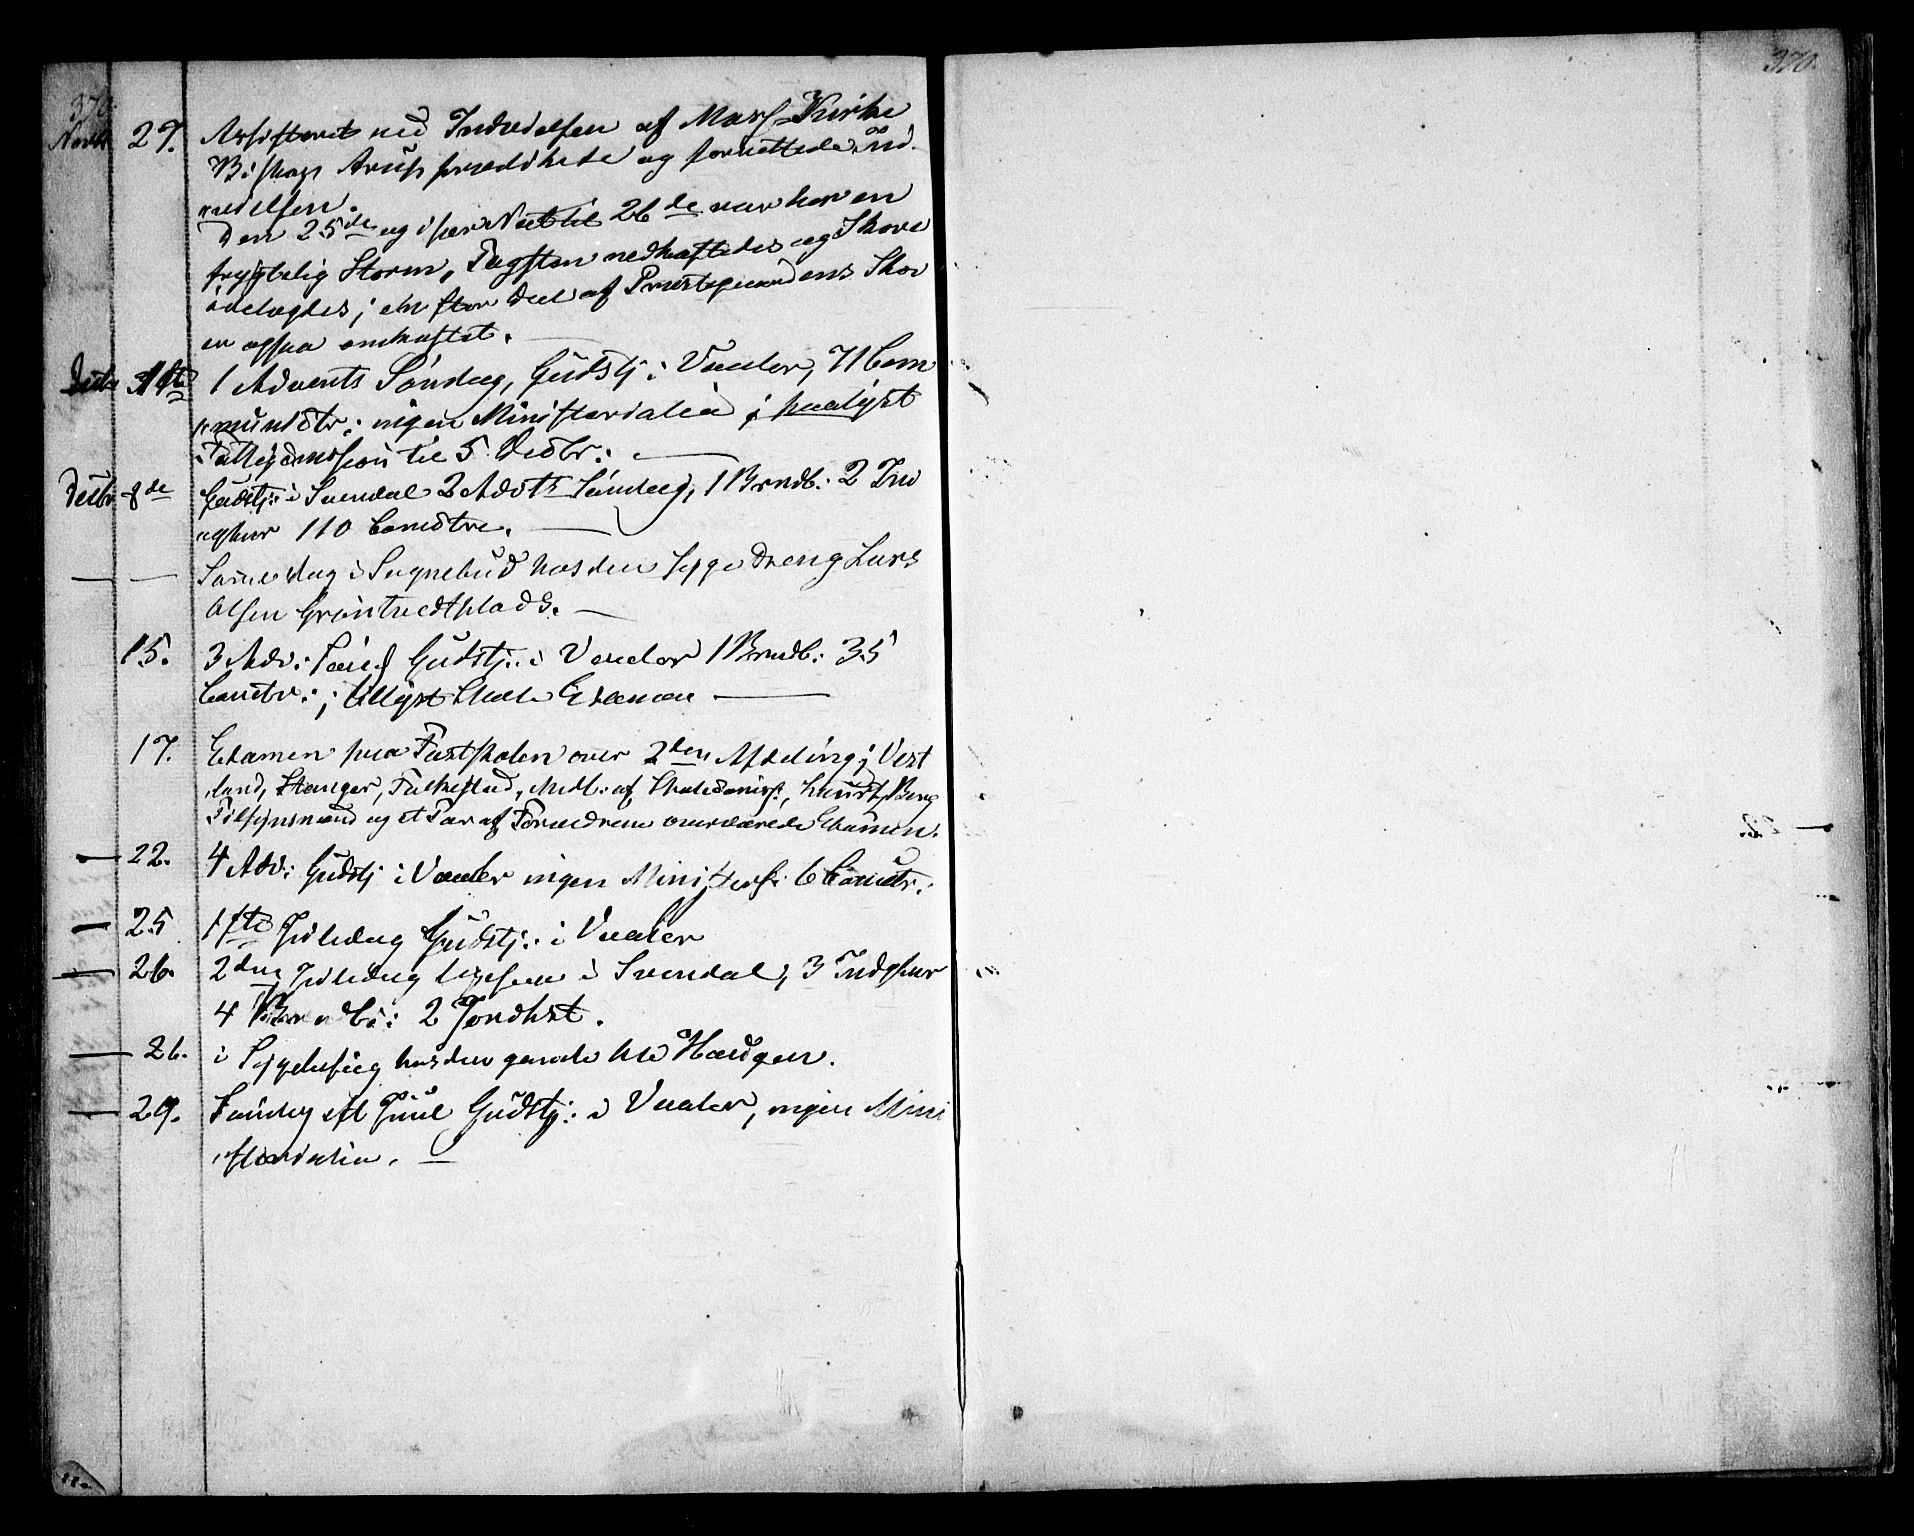 370.
370.
Novbr 27. Assisteret ved Indvielsen af Moss Kirke
Biskop Arup prædikede og forrettede Ind-
vielsen.
Den 25de og især Nat til 26de var her en
frygtelig Storm, Tagsten nedkastedes og Skove
ødelagdes; en stor Deel af Præstegaardens Skov
er ogsaa omkastet.
Decbr 1ste 1 Advents Søndag, Gudstj: i Vaaler, 71 Com
munctr: ingen Ministerialia; paalyst
til 5 Decbr:
Decbr 8de Gudstj: i Svendal 2 Advts Søndag, 1 Brndb: 2 Ind
110 Comctre.
Samme Dag i Sognebud hos den syge Dreng Lars
Olsen Grøntvedtplads.
15. 3 Adv: Sønd Gudstj: i Vaaler 1 Brndb: 35
Comctr:; tillyst Skole Examen
17. Examen paa Fastskolen over 2den Afdeling; Vest
land, Stanger, Falkestad, Medl: af Skolecomiss:, Berg
Tilsynsmand og et Par af Forældrene overværede Examen.
22. 4 Adv: Gudstj i Vaaler ingen Minist: 6 Comctr:
25 1ste Juledag Gudstj: i Vaaler
26. 2den Juledag i Svendal, 3
4 Brndb: 2 Jordkst.
26. i Sygebesøg hos den gamle Haugen.
29. Søndag eft Juul Gudstj: i Vaaler, ingen Mini
sterialia.